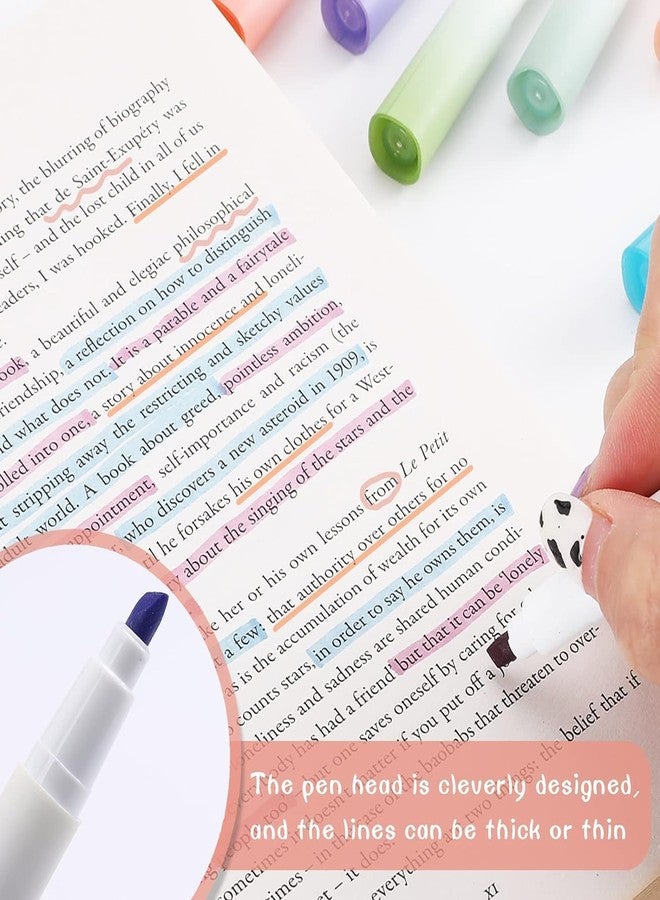 ory, the blurring of biography
ning that de Saint-Exupéry was
self – and the lost child in all of us
eaders, I was hooked. Finally, I fell in
e.
ook, a beautiful and elegiac philosophical
friendship, a reflection on how to distinguish
nd what does not. It is a parable and a fairytale
olled into one, a story about innocence and loneli-
t stripping away the restricting and sketchy values
adult world. A book about greed, pointless ambition,
ppointment, self-importance and racism (the
who discovers a new asteroid in 1909, is
til he forsakes his own clothes for a West-
y about the singing of the stars and the
ke her or his own lessons from Le Petit
t a few: that authority over others for no
as is the accumulation of wealth for its own
counts stars, in order to say he owns them, is
loneliness and sadness are shared human condi-
has had a friend but that it can be 'lonely
one saves oneself by caring for
if you put off a
baobabs that threaten to over-
two things: the belief that if
XI
The pen head is cleverly designed,
and the lines can be thick or thin